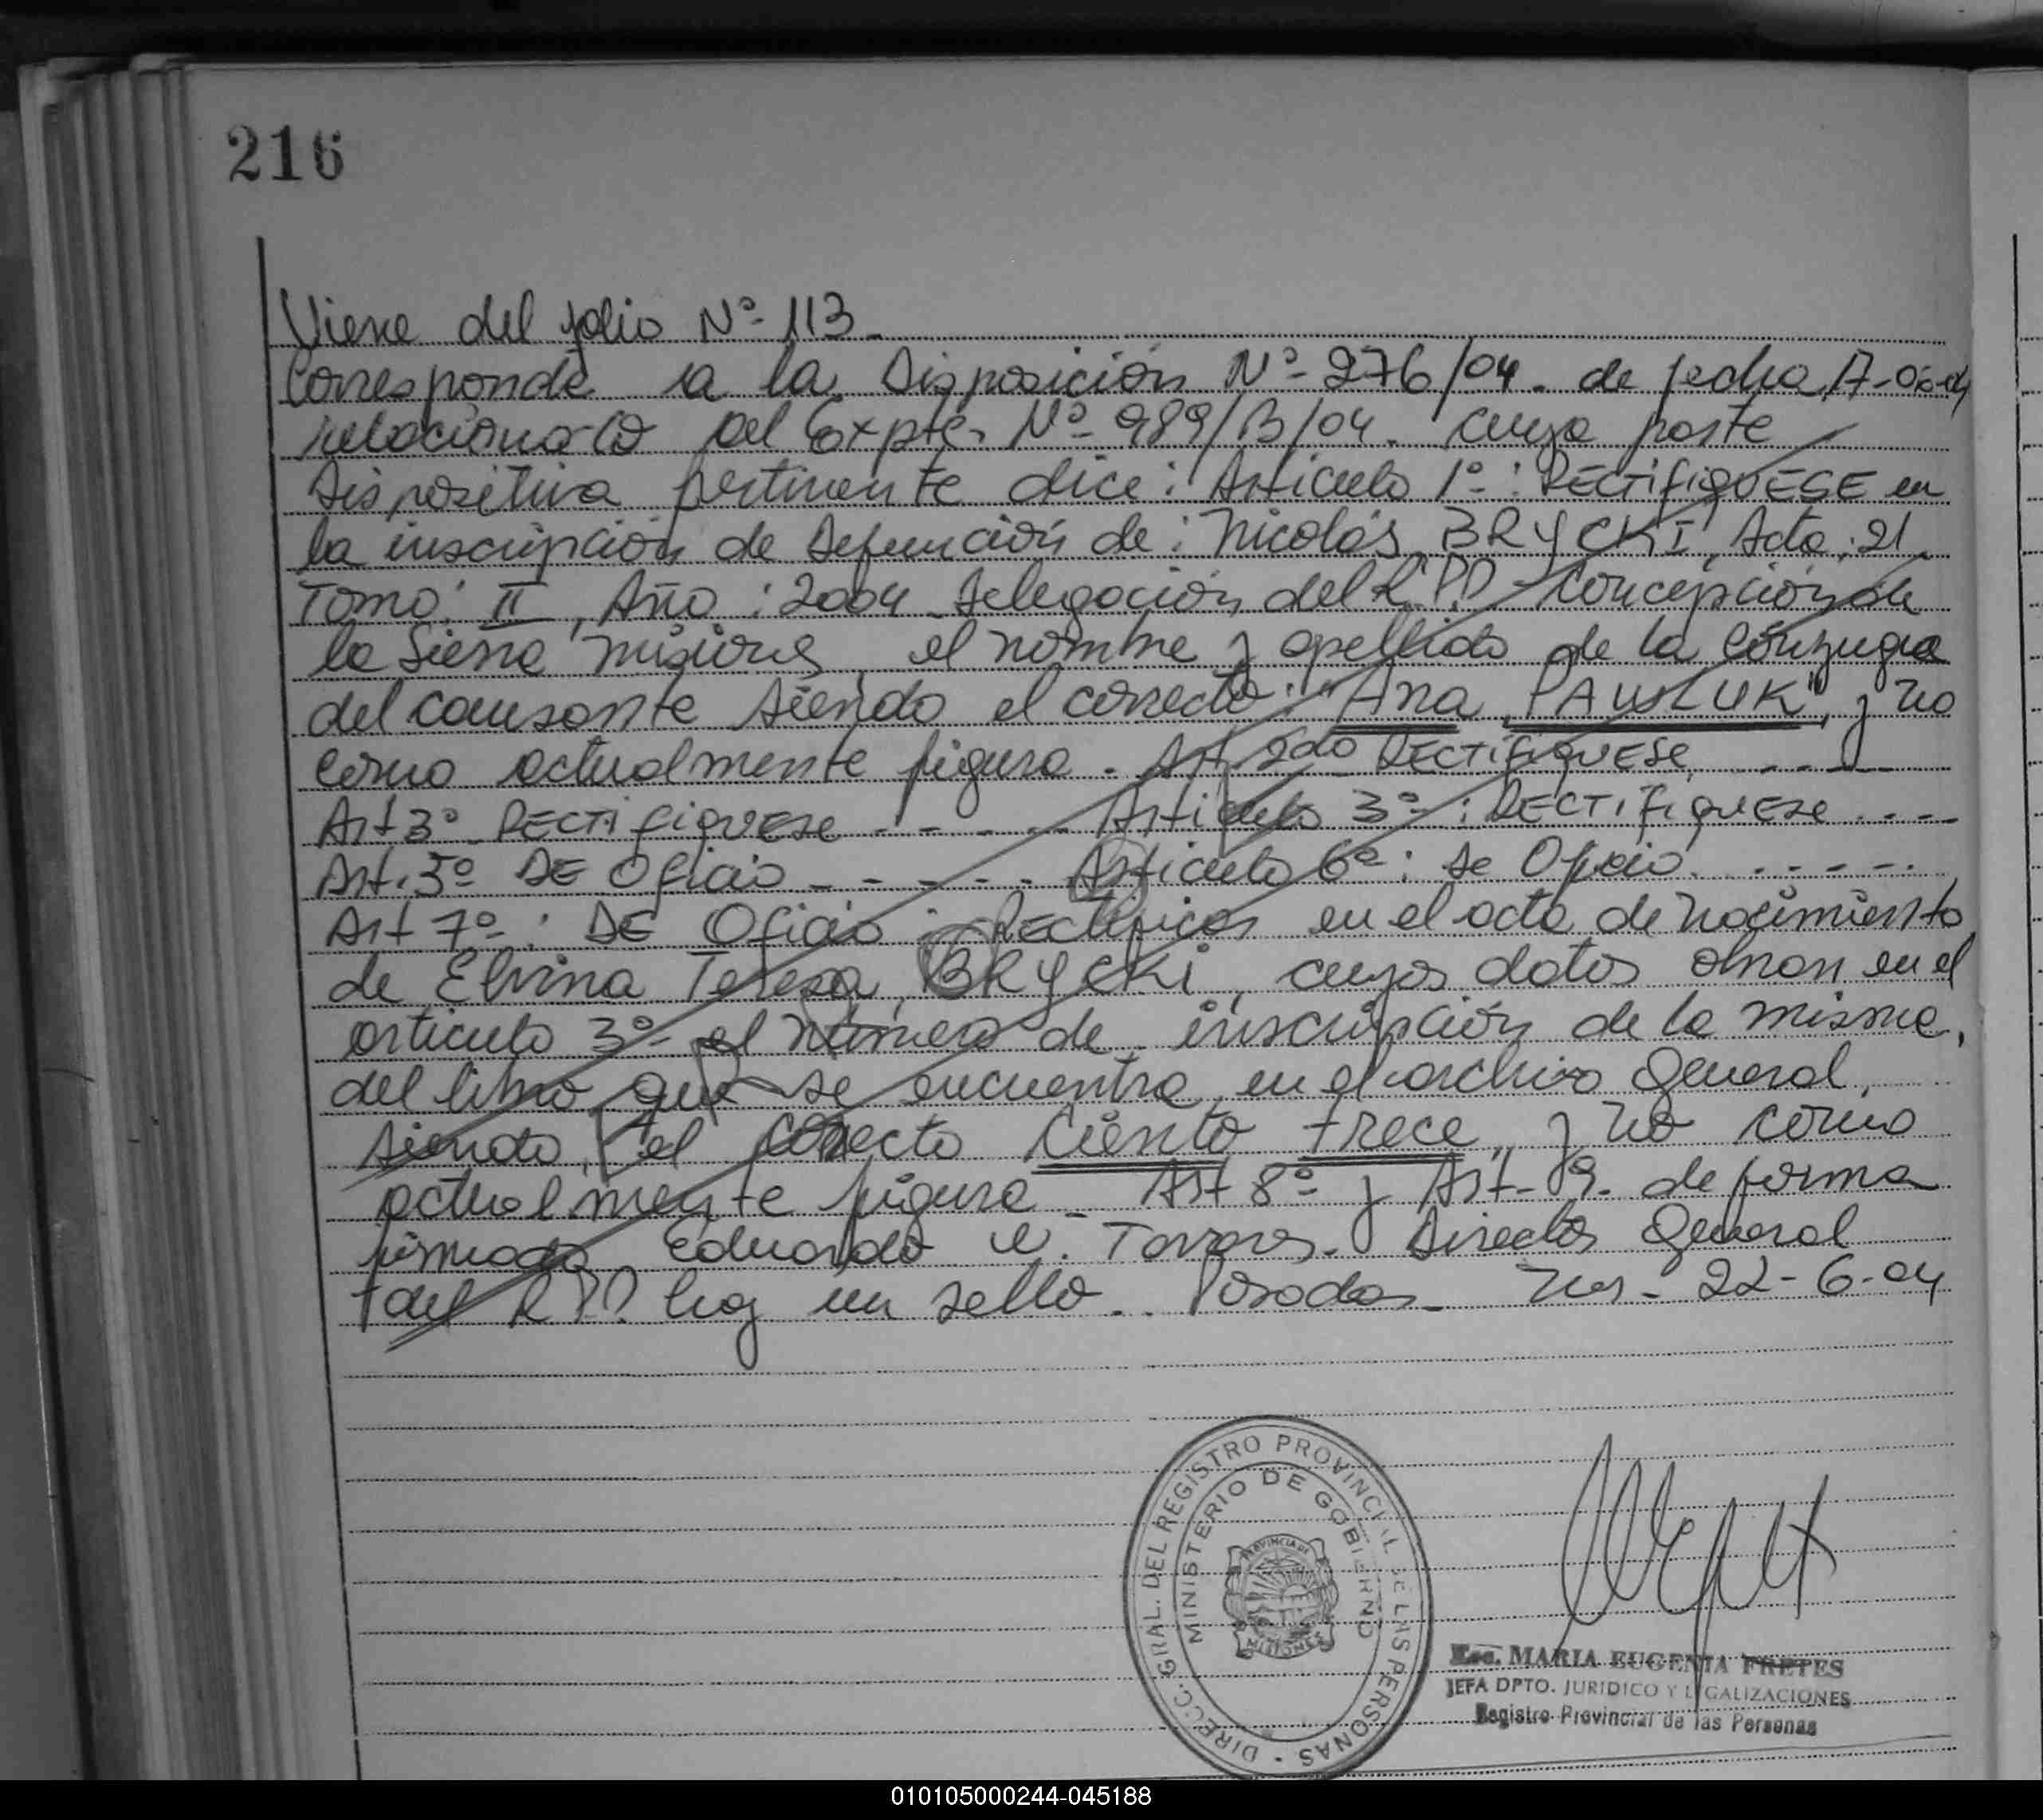 216
Viene del folio Nº 113-
Corresponde a la Disposición Nº 276/04. de fecha 17-06-04
relacionado del Expte. Nº 989/B/04. cuya parte
Dispositiva pertinente dice: Articulo 1º: RECTIFIQUESE en
la inscripción de Defunción de: Nicolás BRYCKI, Acta: 21.
Tomo: II, Año: 2004 Delegación del R.P.P Concepción de
la Sierra Misiones, el nombre y apellido de la cónyugue
del causante siendo el correcto: "Ana PAWLUK", y no
como actualmente figura. Art 2do RECTIFIQUESE, - - - -
Art 3º RECTIFIQUESE - - - - - Articulo 3º: RECTIFIQUESE . - - -
Art. 5º DE Oficio - - - - - . Articulo 6º: De Oficio. . - - - -.
Art 7º: DE Oficio Rectificar en el acta de nacimiento
de Elvina Teresa, BRYCKI, cuyos datos obran en el
articulo 3º el número de inscripción de la misma,
del libro que se encuentra en el archivo General,
siendo, el correcto Ciento trece, y no como
actualmente figura - Art 8º y Art- 9. de forma
firmado Eduardo Torres. Director General
del RPP hay un sello. Posadas- Mns.- 22-6-04
DIRECC. GRAL. DEL REGISTRO PROVINCIAL DE LAS PERSONAS -
MINISTERIO DE GOBIERNO
PROVINCIA DE
MISIONES
Esc. MARIA EUGENIA FRETES
JEFA DPTO. JURIDICO Y LEGALIZACIONES
Registro Provincial de las Personas
010105000244-045188